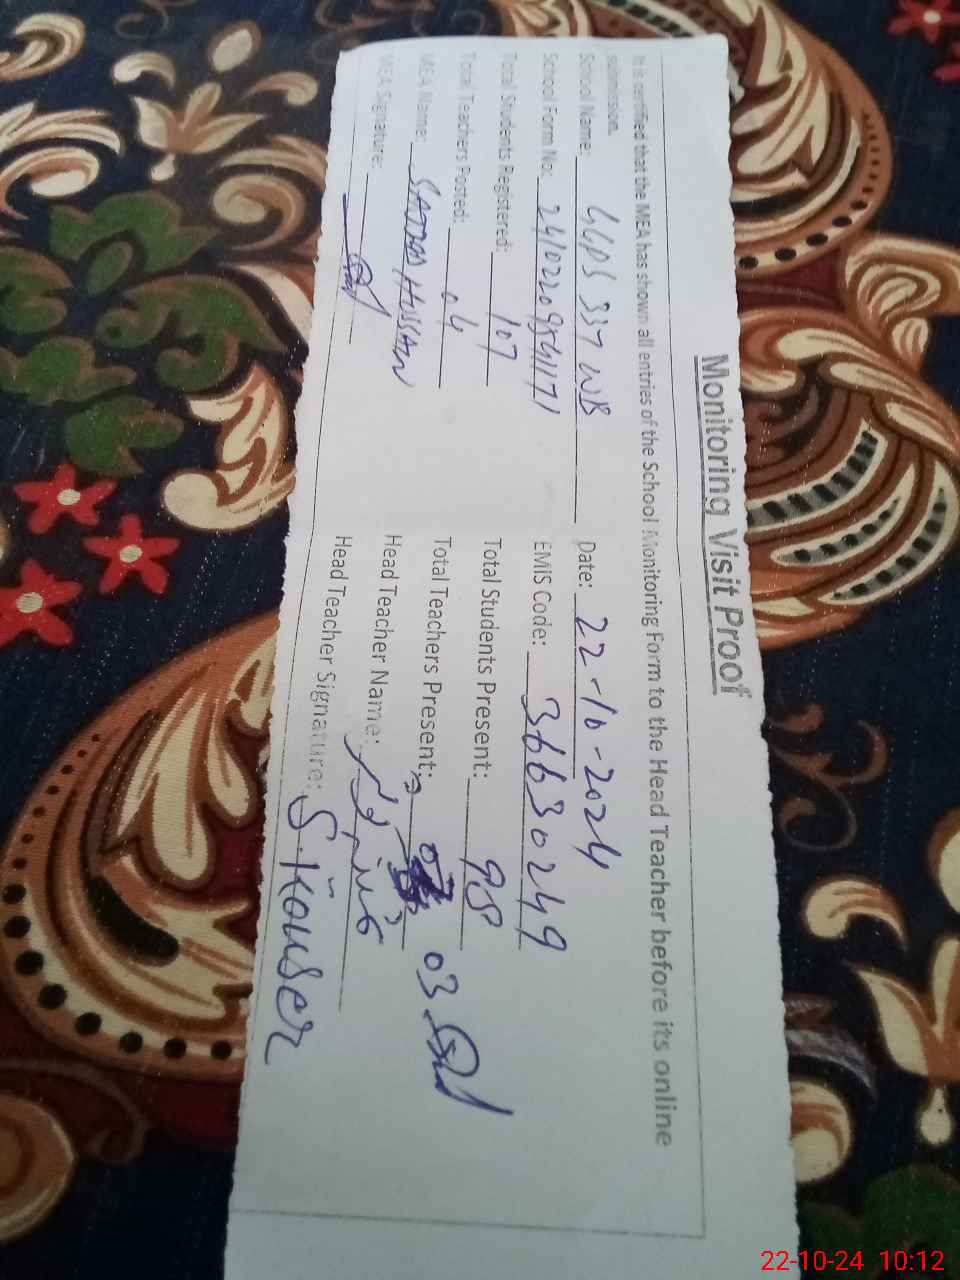 Monitoring Visit Proof
It is certified that the MEA has shown all entries of the School Monitoring Form to the Head Teacher before its online
submission.
School Name: GGPS 337 WB Date: 22-10-2024
School Form No: EMIS Code: 36630249
Total Students Registered: 107 Total Students Present: 98
Total Teachers Posted: 04 Total Teachers Present: 03
MEA Name: SADDAM HUSSAIN Head Teacher Name:
MEA Signature: Head Teacher Signature: S.Kouser
22-10-24 10:12